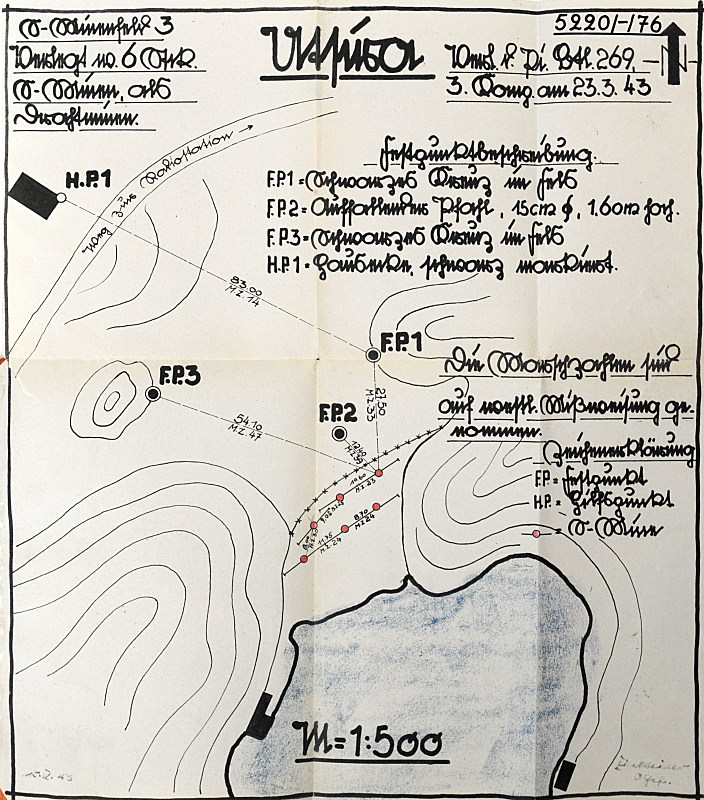 S-Minenfeld 3
Verlegt w. 6 Stck.
S-Minen, als
Drachtminen.
Utsira
5220/-/76
Verl. d. Pi. Btl. 269,
3. Komp. am 23.3.43
N
Festpunktbeschreibung.
F.P.1 = Schwarzes Kreuz im Fels
F.P.2 = Auffallender Pfahl, 15cm ϕ, 1.60m hoch.
F.P.3 = Schwarzes Kreuz im Fels
H.P.1 = Hausecke, schwarz markiert.
H.P.1
Nach zur Radiostation →
83.00
M.Z.14
F.P.1
F.P.3
F.P.2
54.10
M.Z.47
27.50
M.Z.33
Die Marschzahlen sind
auf westl. Mißweisung ge-
nommen.
Zeichenerklärung
F.P. = Festpunkt
H.P. = Hilfspunkt
= S-Mine
10.60
M.Z.23
8.70
M.Z.24
11.75
M.Z.24
M = 1:500